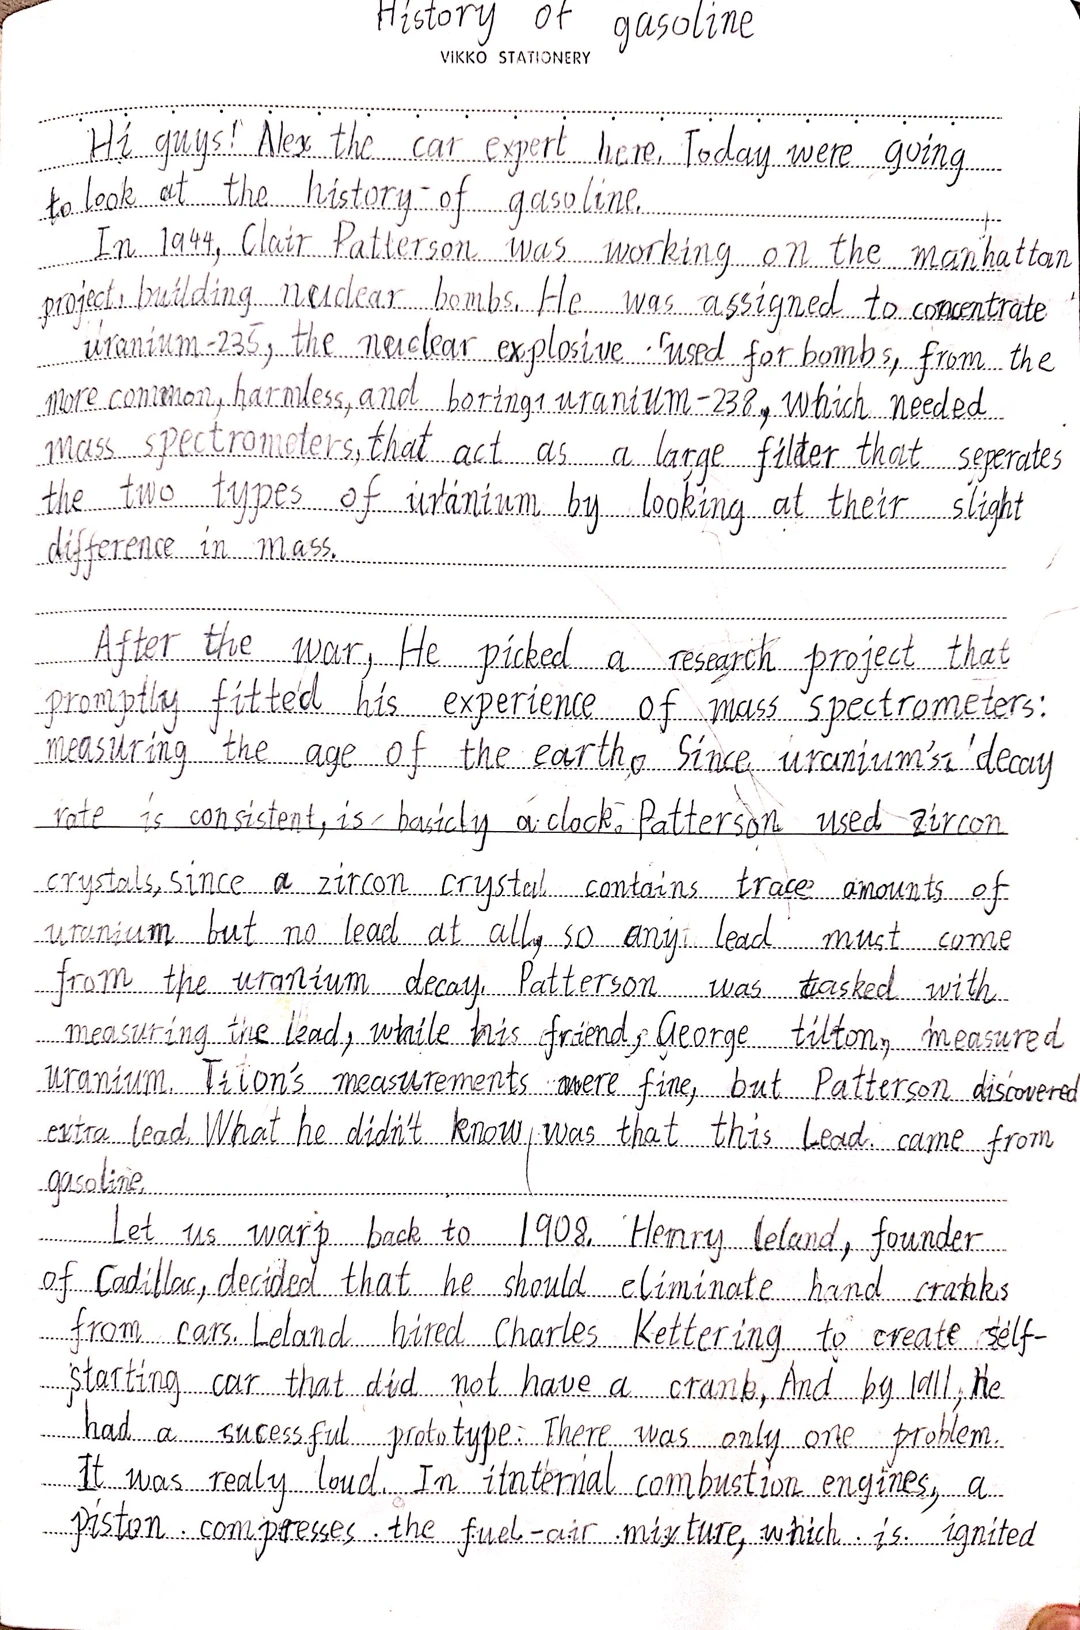 History of gasoline
VIKKO STATIONERY
Hi guys! Alex the car expert here. Today were going
to look at the history of gasoline.
In 1944, Clair Patterson was working on the manhattan
project, building nuclear bombs. He was assigned to concentrate
uranium-235, the nuclear explosive used for bombs, from the
more common, harmless, and boring uranium-238, which needed
mass spectrometers, that act as a large filter that seperates
the two types of uranium by looking at their slight
difference in mass.
After the war, He picked a research project that
promptly fitted his experience of mass spectrometers:
measuring the age of the earth. Since uranium's decay
rate is consistent, is basicly a clock. Patterson used zircon
crystals, since a zircon crystal contains trace amounts of
uranium but no lead at all, so any lead must come
from the uranium decay. Patterson was tasked with
measuring the lead, while his friend, George tilton, measured
uranium. Tilton's measurements were fine, but Patterson discovered
extra lead. What he didn't know was that this Lead came from
gasoline.
Let us warp back to 1908. Henry leland, founder
of Cadillac, decided that he should eliminate hand cranks
from cars. Leland hired Charles Kettering to create self-
starting car that did not have a crank, And by 1911, He
had a sucessful prototype. There was only one problem.
It was realy loud. In itnternal combustion engines, a
piston compresses the fuel-air mixture, which is ignited